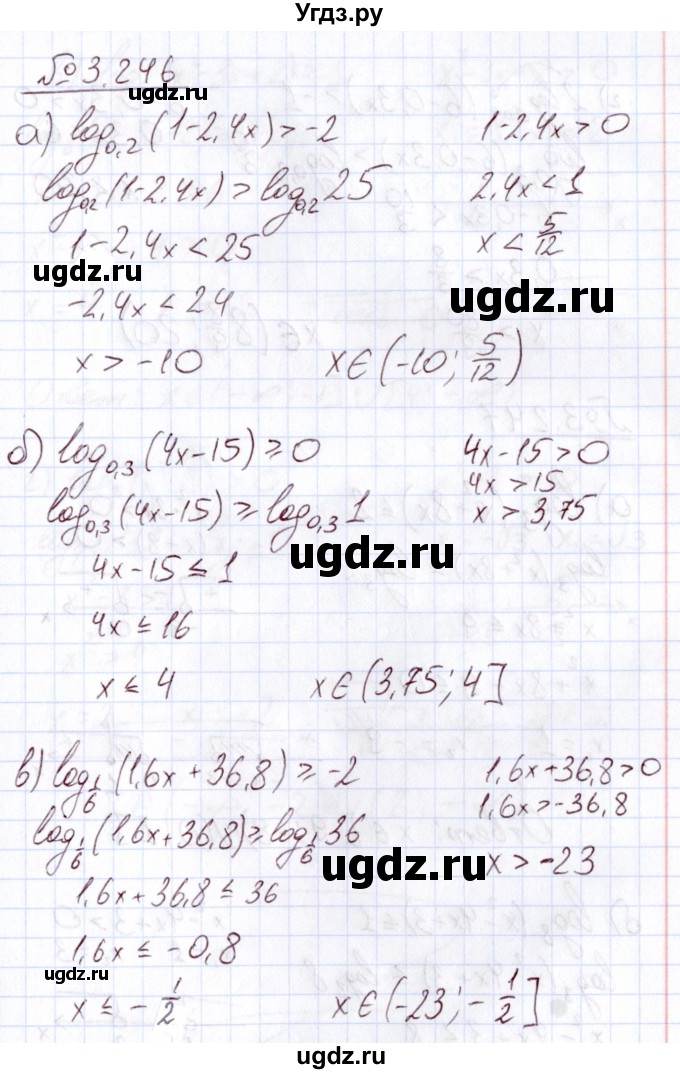 Угдз.ру
№ 3.246
угдз.ру
а) log₀,₂(1-2,4x) > -2 1-2,4x > 0
log₀,₂(1-2,4x) > log₀,₂25 2,4x < 1
1-2,4x < 25 x < 5/12
угдз.ру
-2,4x < 24
ugdz.ru
x > -10 x∈(-10; 5/12)
угдз.ру
б) log₀,₃(4x-15) ≥ 0 4x-15 > 0
4x > 15
log₀,₃(4x-15) ≥ log₀,₃1 x > 3,75
ugdz.ru
4x-15 ≤ 1
4x ≤ 16
x ≤ 4 x∈(3,75; 4]
угдз.ру
в) log₁/₆(1,6x + 36,8) ≥ -2 1,6x+36,8 > 0
1,6x > -36,8
log₁/₆(1,6x+36,8) ≥ log₁/₆36 x > -23
ugdz.ru
1,6x+36,8 ≤ 36
1,6x ≤ -0,8
угдз.ру
x ≤ -1/2 x∈(-23; -1/2]
ugdz.ru